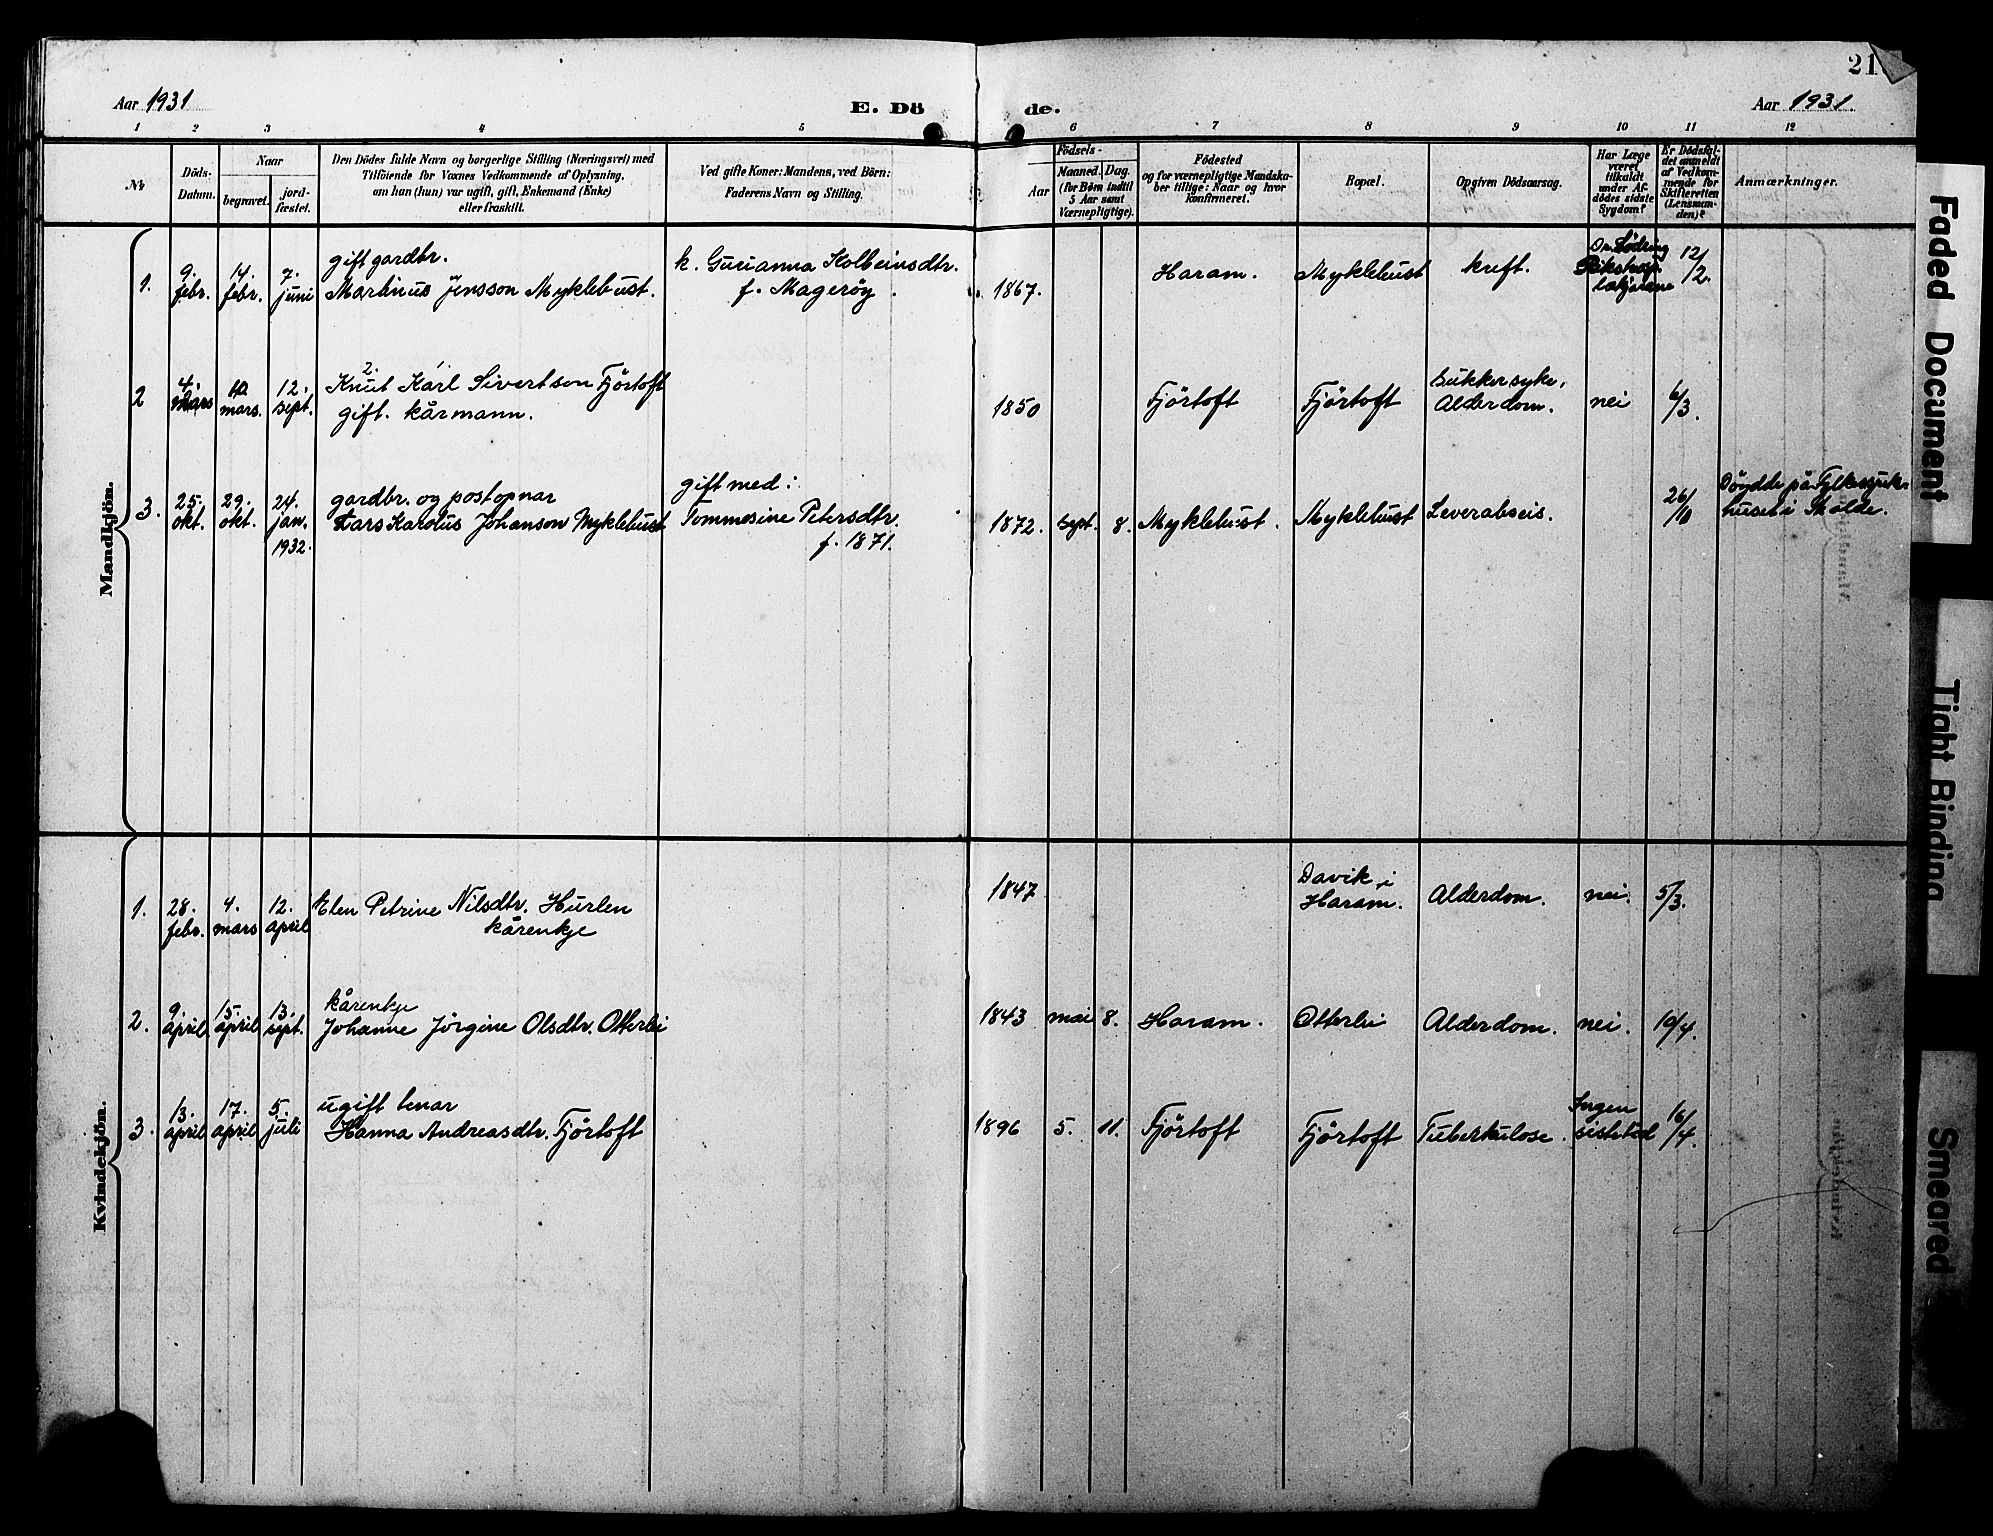 21
Aar 1931
E. Dö
de.
Aar 1931
1 2 3 4 5 6 7 8 9 10 11 12
No
Döds-
Datum.
Naar
begravet.
jord-
fæstet.
Den Dödes fulde Navn og borgerlige Stilling (Næringsvei) med
Tilföiende for Voxnes Vedkommende af Oplysning,
om han (hun) var ugift, gift, Enkemand (Enke)
eller fraskilt.
Ved gifte Koner: Mandens, ved Börn:
Faderens Navn og Stilling.
Födsels-
Aar
Maaned.
Dag.
(for Börn indtil
5 Aar samt
Værnepligtige).
Födested
og for værnepligtige Mandska-
ber tillige: Naar og hvor
konfirmeret.
Bopæl.
Opgiven Dödsaarsag.
Har Læge
været
tilkaldt
under Af-
dödes sidste
Sygdom?
Er Dödsfal-
det anmeldt
af Vedkom-
mende for
Skifteretten
(Lensman-
den)?
Anmærkninger.
Mandkjön.
1.
9.
febr.
14.
febr.
7.
juni
gift gardbr.
Martinus Jensson Myklebust.
k. Gurianna Kolbeinsdtr.
f. Magerøy.
1867.
Haram.
Myklebust
kreft.
Dr. Lødring
12/2.
2
4.
mars
10.
mars.
12.
sept.
2. 1.
Knut Karl Sivertson Fjörtoft
gift. kårmann.
1850
Fjörtoft
Fjörtoft
Sukkersyke,
Alderdom.
nei
6/3.
3.
25.
okt.
29.
okt.
24.
jan.
1932.
gardbr. og postopnar
Lars Karolus Johanson Myklebust
gift med:
Tommesine Petersdtr.
f. 1871.
1872.
sept.
8.
Myklebust.
Myklebust
Leverabseis.
26/10
Döydde på Fylkessjuk-
huset i Molde.
Kvindekjön.
1.
28.
febr.
4.
mars
12.
april
Elen Petrine Nilsdtr. Hurlen
kårenkje
1847
Davik i
Haram.
Alderdom.
nei.
5/3.
2.
9.
april
15.
april
13.
sept.
kårenkje
Johanne Jörgine Olsdtr. Otterlei
1843
mai
8.
Haram.
Otterlei
Alderdom.
nei.
10/4.
3.
13.
april
17.
april
5.
juli
ugift tenar
Hanna Andreasdtr. Fjörtoft
1896
5.
11.
Fjörtoft
Fjörtoft
Tuberkulose.
Ingen
16/4.
Faded Document
Tight Binding
Smeared